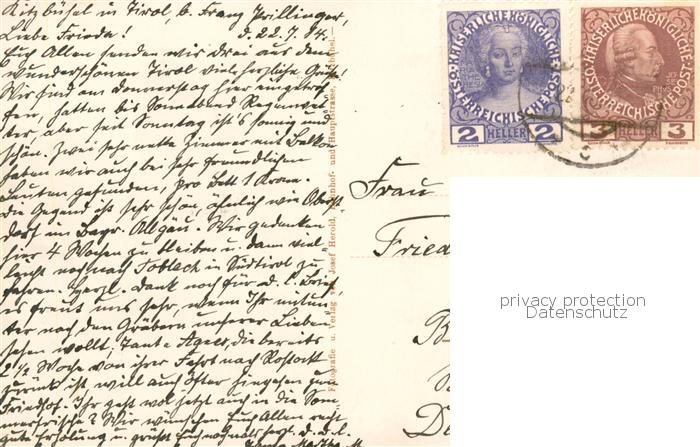 Kitzbühel in Tirol b. Franz Prillinger,
Liebe Frieda! d. 22.7.14.
Euch Allen senden wir Drei aus dem
wunderschönen Tirol viele herzliche Grüße!
Wir sind am Donnerstag hier eingetrof-
fen, hatten bis Sonnabend Regenwet-
ter, aber seit Sonntag ist's sonnig und
schön. Zwei sehr nette Zimmer mit Balkon
haben wir auch bei sehr freundlichen
Leuten gefunden, pro Bett 1 Krone.
Die Gegend ist sehr schön, ähnlich wie Oberst-
dorf im Bayr. Allgäu. Wir gedenken
hier 4 Wochen zu bleiben u. dann viel-
leicht noch nach Toblach in Südtirol zu
fahren. Herzl. Dank noch für d. l. Brief,
es freut uns sehr, wenn Ihr mitun-
ter nach den Gräbern unserer Lieben
sehen wollt, Tante Agnes, die bereits
2 1/2 Woche von ihrer Fahrt nach Rostock
zurück ist, will auch öfter hingehen zum
Friedhof. Ihr geht wol jetzt auch in die Som-
merfrische? Wir wünschen Euch Allen recht
gute Erholung u. grüßt Euch nochmals herzl. d. d. l.
Photografie u. Verlag v. Josef Herold, Bahnhof- und Hauptstrasse, Kitzbühel.
KAISERLICHE KÖNIGLICHE
ÖSTERREICHISCHE POST
2 HELLER 2
KAISERLICHE KÖNIGLICHE
ÖSTERREICHISCHE POST
3 HELLER 3
Frau
Fried
B
S
privacy protection
Datenschutz